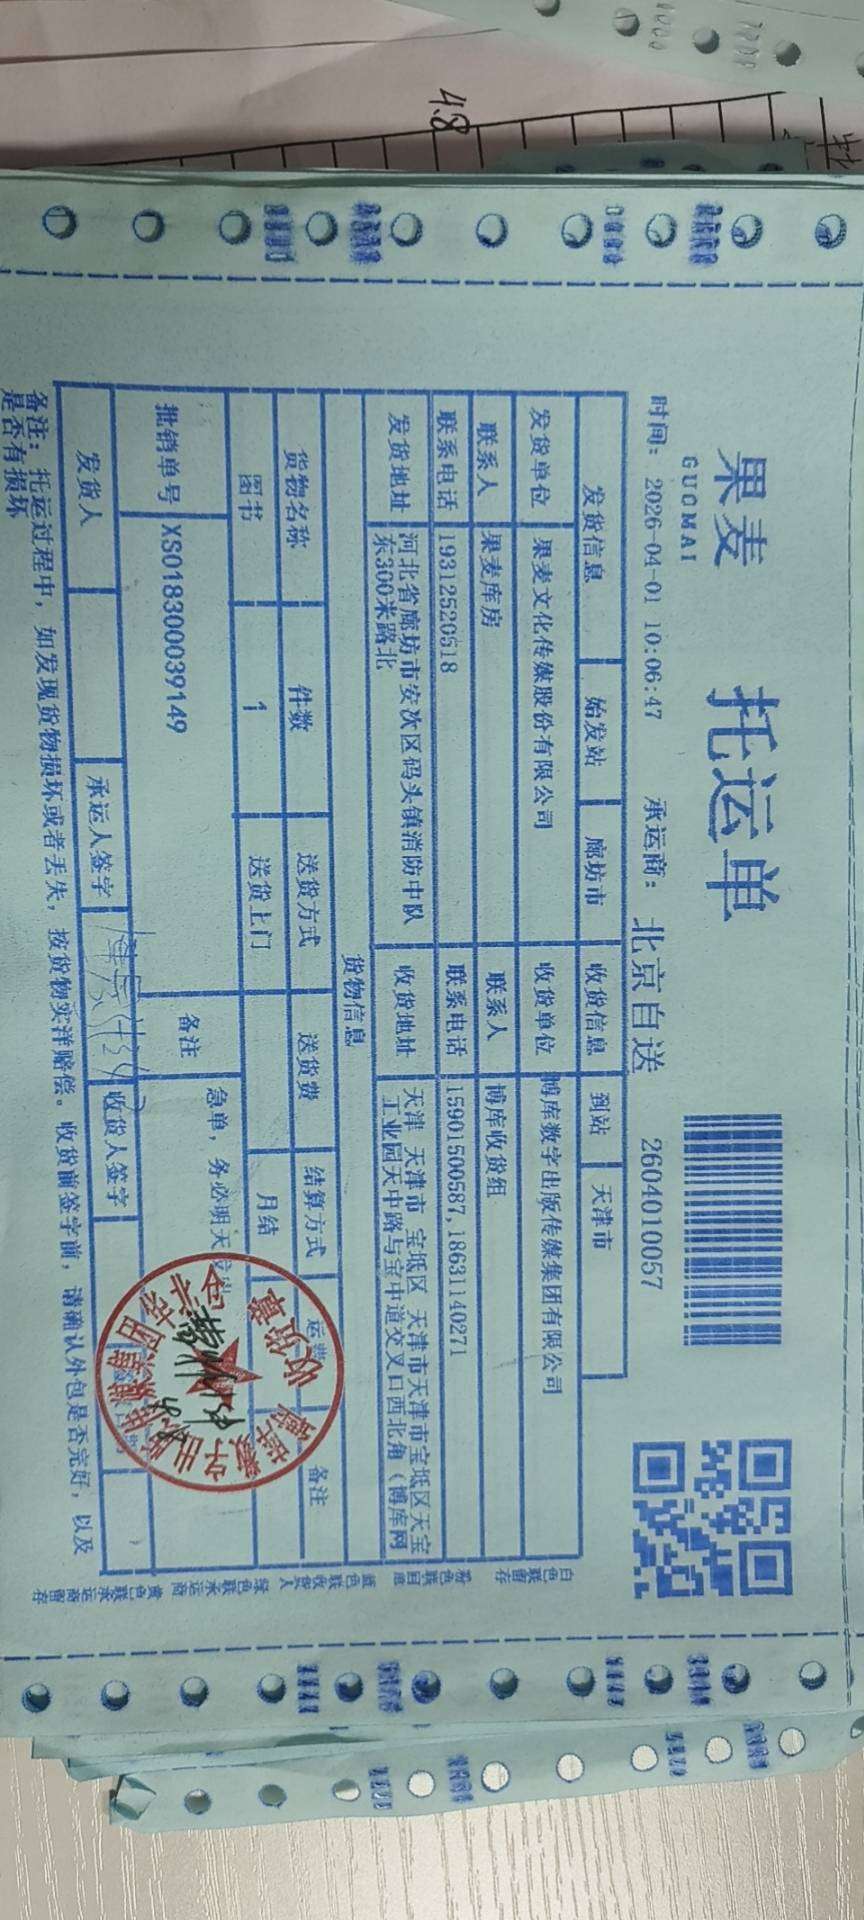 4.8
果麦
GUOMAI
托运单
时间：2026-04-01 10:06:47
承运商：北京自送
2604010057
发货信息 始发站 廊坊市 收货信息 到站 天津市
发货单位 果麦文化传媒股份有限公司 收货单位 博库数字出版传媒集团有限公司
联系人 果麦库房 联系人 博库收货组
联系电话 19312520518 联系电话 15901500587,18631140271
发货地址 河北省廊坊市安次区码头镇消防中队
东300米路北
收货地址 天津 天津市 宝坻区 天津市天津市宝坻区天宝
工业园天中路与宝中道交叉口西北角（博库网
货物信息
货物名称 件数 送货方式 送货费 结算方式 运费 备注
图书 1 送货上门 月结
批销单号 XS018300039149 备注 急单，务必明天
发货人 承运人签字 收货人签字
备注：托运过程中，如发现货物损坏或者丢失，按货物实洋赔偿。收货前签字前，请确认外包是否完好，以及
是否有损坏
白色联留存 粉色联回意 蓝色联收货人 绿色联承运商 黄色联承运商留存
收货章